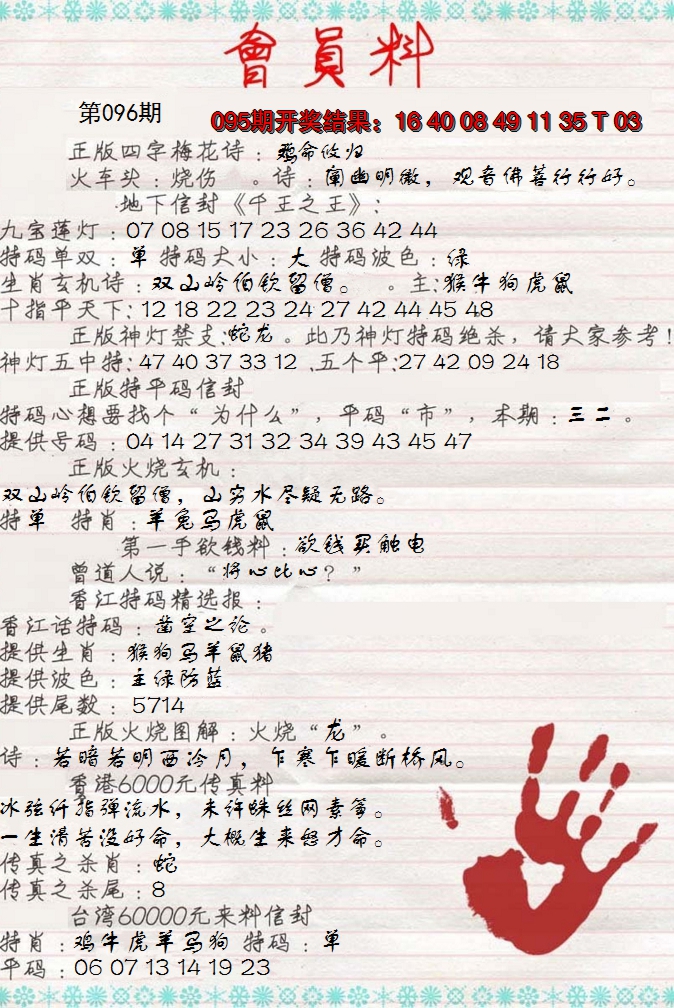 會員料
第096期
095期开奖结果：16 40 08 49 11 35 T 03
正版四字梅花诗：鸡命攸归
火车头：烧伤 。诗：阐幽明微，观音佛善行行好。
地下信封《千王之王》：
九宝莲灯：07 08 15 17 23 26 36 42 44
特码单双：单 特码大小：大 特码波色：绿
生肖玄机诗：双山岭伯钦留僧。 。主：猴牛狗虎鼠
十指平天下：12 18 22 23 24 27 42 44 45 48
正版神灯禁支：蛇龙。此乃神灯特码绝杀，请大家参考！
神灯五中特：47 40 37 33 12 、五个平：27 42 09 24 18
正版特平码信封
特码心想要找个“为什么”，平码“市”，本期：三二。
提供号码：04 14 27 31 32 34 39 43 45 47
正版火烧玄机：
双山岭伯钦留僧，山穷水尽疑无路。
特单 特肖：羊兔马虎鼠
第一手欲钱料：欲钱买触电
曾道人说：“将心比心？”
香江特码精选报：
香江话特码：凿空之论。
提供生肖：猴狗马羊鼠猪
提供波色：主绿防蓝
提供尾数：5714
正版火烧图解：火烧“龙”。
诗：若暗若明西冷月，乍寒乍暖断桥风。
香港6000元传真料
冰弦纤指弹流水，未许蛛丝网素筝。
一生清苦没好命，大概生来怨才命。
传真之杀肖：蛇
传真之杀尾：8
台湾60000元来料信封
特肖：鸡牛虎羊马狗 特码：单
平码：06 07 13 14 19 23